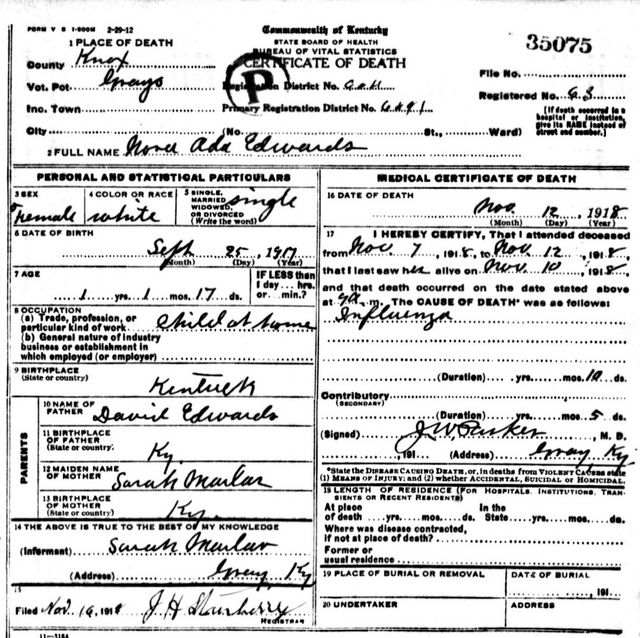 FORM V S 1-500M 2-29-12
Commonwealth of Kentucky
STATE BOARD OF HEALTH
BUREAU OF VITAL STATISTICS
CERTIFICATE OF DEATH
35075
1 PLACE OF DEATH
County Knox
Vot. Pct Grays
Inc. Town
City (No. St., Ward)
P
Registration District No.
Primary Registration District No.
File No.
Registered No. 63
(If death occurred in a hospital or institution, give its NAME instead of street and number.)
2 FULL NAME Nora Ada Edwards
PERSONAL AND STATISTICAL PARTICULARS
3 SEX
Female
4 COLOR OR RACE
white
5 SINGLE, MARRIED WIDOWED, OR DIVORCED (Write the word)
single
6 DATE OF BIRTH
Sept 25, 1917
(Month) (Day) (Year)
7 AGE
1 yrs. 1 mos. 17 ds.
IF LESS than 1 day... hrs. or min.?
8 OCCUPATION
(a) Trade, profession, or particular kind of work child at home
(b) General nature of industry
business or establishment in
which employed (or employer)
9 BIRTHPLACE
(State or country)
Kentucky
PARENTS
10 NAME OF FATHER
David Edwards
11 BIRTHPLACE OF FATHER
(State or country)
Ky
12 MAIDEN NAME OF MOTHER
Sarah Marlar
13 BIRTHPLACE OF MOTHER
(State or country)
Ky.
14 THE ABOVE IS TRUE TO THE BEST OF MY KNOWLEDGE
(Informant) Sarah Marlar
(Address) Gray, Ky
15
Filed Nov. 19 1918 J H
REGISTRAR
11-3184
MEDICAL CERTIFICATE OF DEATH
16 DATE OF DEATH
Nov. 12, 1918
(Month) (Day) (Year)
17 I HEREBY CERTIFY, That I attended deceased
from Nov. 7, 1918, to Nov. 12, 1918,
that I last saw her alive on Nov. 10, 1918,
and that death occurred on the date stated above
at m. The CAUSE OF DEATH* was as follows:
Influenza
(Duration) yrs. mos. 10 ds.
Contributory
(SECONDARY)
(Duration) yrs. mos. 5 ds.
(Signed) J. W. Parker, M. D.
191 (Address) Gray Ky
*State the DISEASE CAUSING DEATH, or, in deaths from VIOLENT CAUSES state
(1) MEANS OF INJURY; and (2) whether ACCIDENTAL, SUICIDAL or HOMICIDAL.
18 LENGTH OF RESIDENCE (FOR HOSPITALS, INSTITUTIONS, TRANSIENTS OR RECENT RESIDENTS)
At place of death yrs. mos. ds. In the State yrs. mos. ds.
Where was disease contracted,
if not at place of death?
Former or
usual residence
19 PLACE OF BURIAL OR REMOVAL
DATE OF BURIAL
191
20 UNDERTAKER
ADDRESS